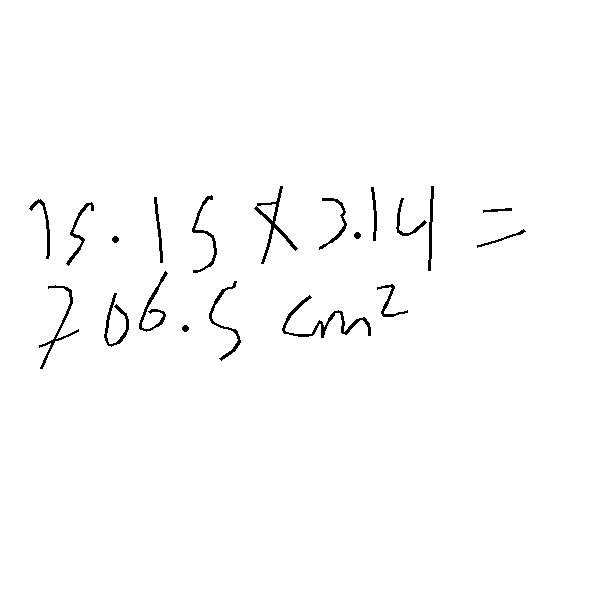 15.15 x 3.14 =
706.5 cm²